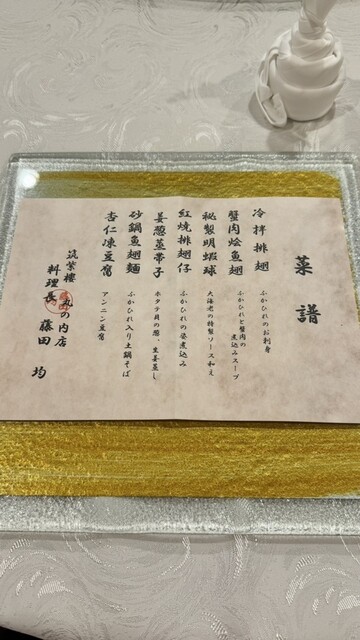 菜譜
冷拌排翅
ふかひれのお刺身
蟹肉燴魚翅
ふかひれと蟹肉の煮込みスープ
秘製明蝦球
大海老の特製ソース和え
紅焼排翅仔
ふかひれの姿煮込み
姜葱蒸帯子
ホタテ貝の葱、生姜蒸し
砂鍋魚翅麺
ふかひれ入り土鍋そば
杏仁凍豆腐
アンニン豆腐
筑紫樓 丸の内店
料理長 藤田 均